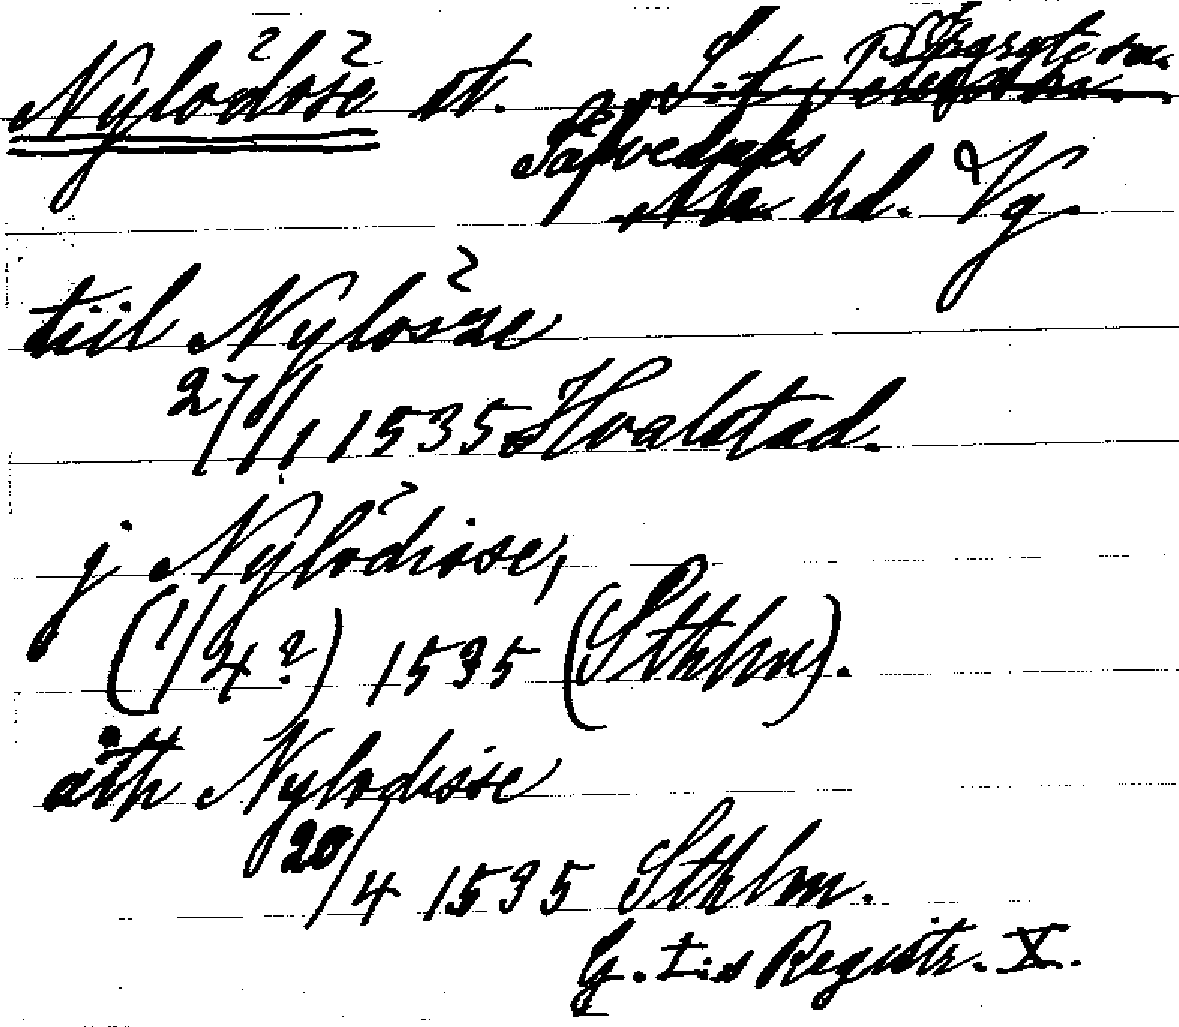 Nylödöse st.
S:t Peters sn.
Sävedals
Ale hd. Vg.
tiil Nylösze
27/1 1535 Hvalstad.
j Nylödiose,
(1/4?) 1535 (Sthlm).
åth Nylodiose
20/4 1535 Sthlm.
G. I:s Registr. X.